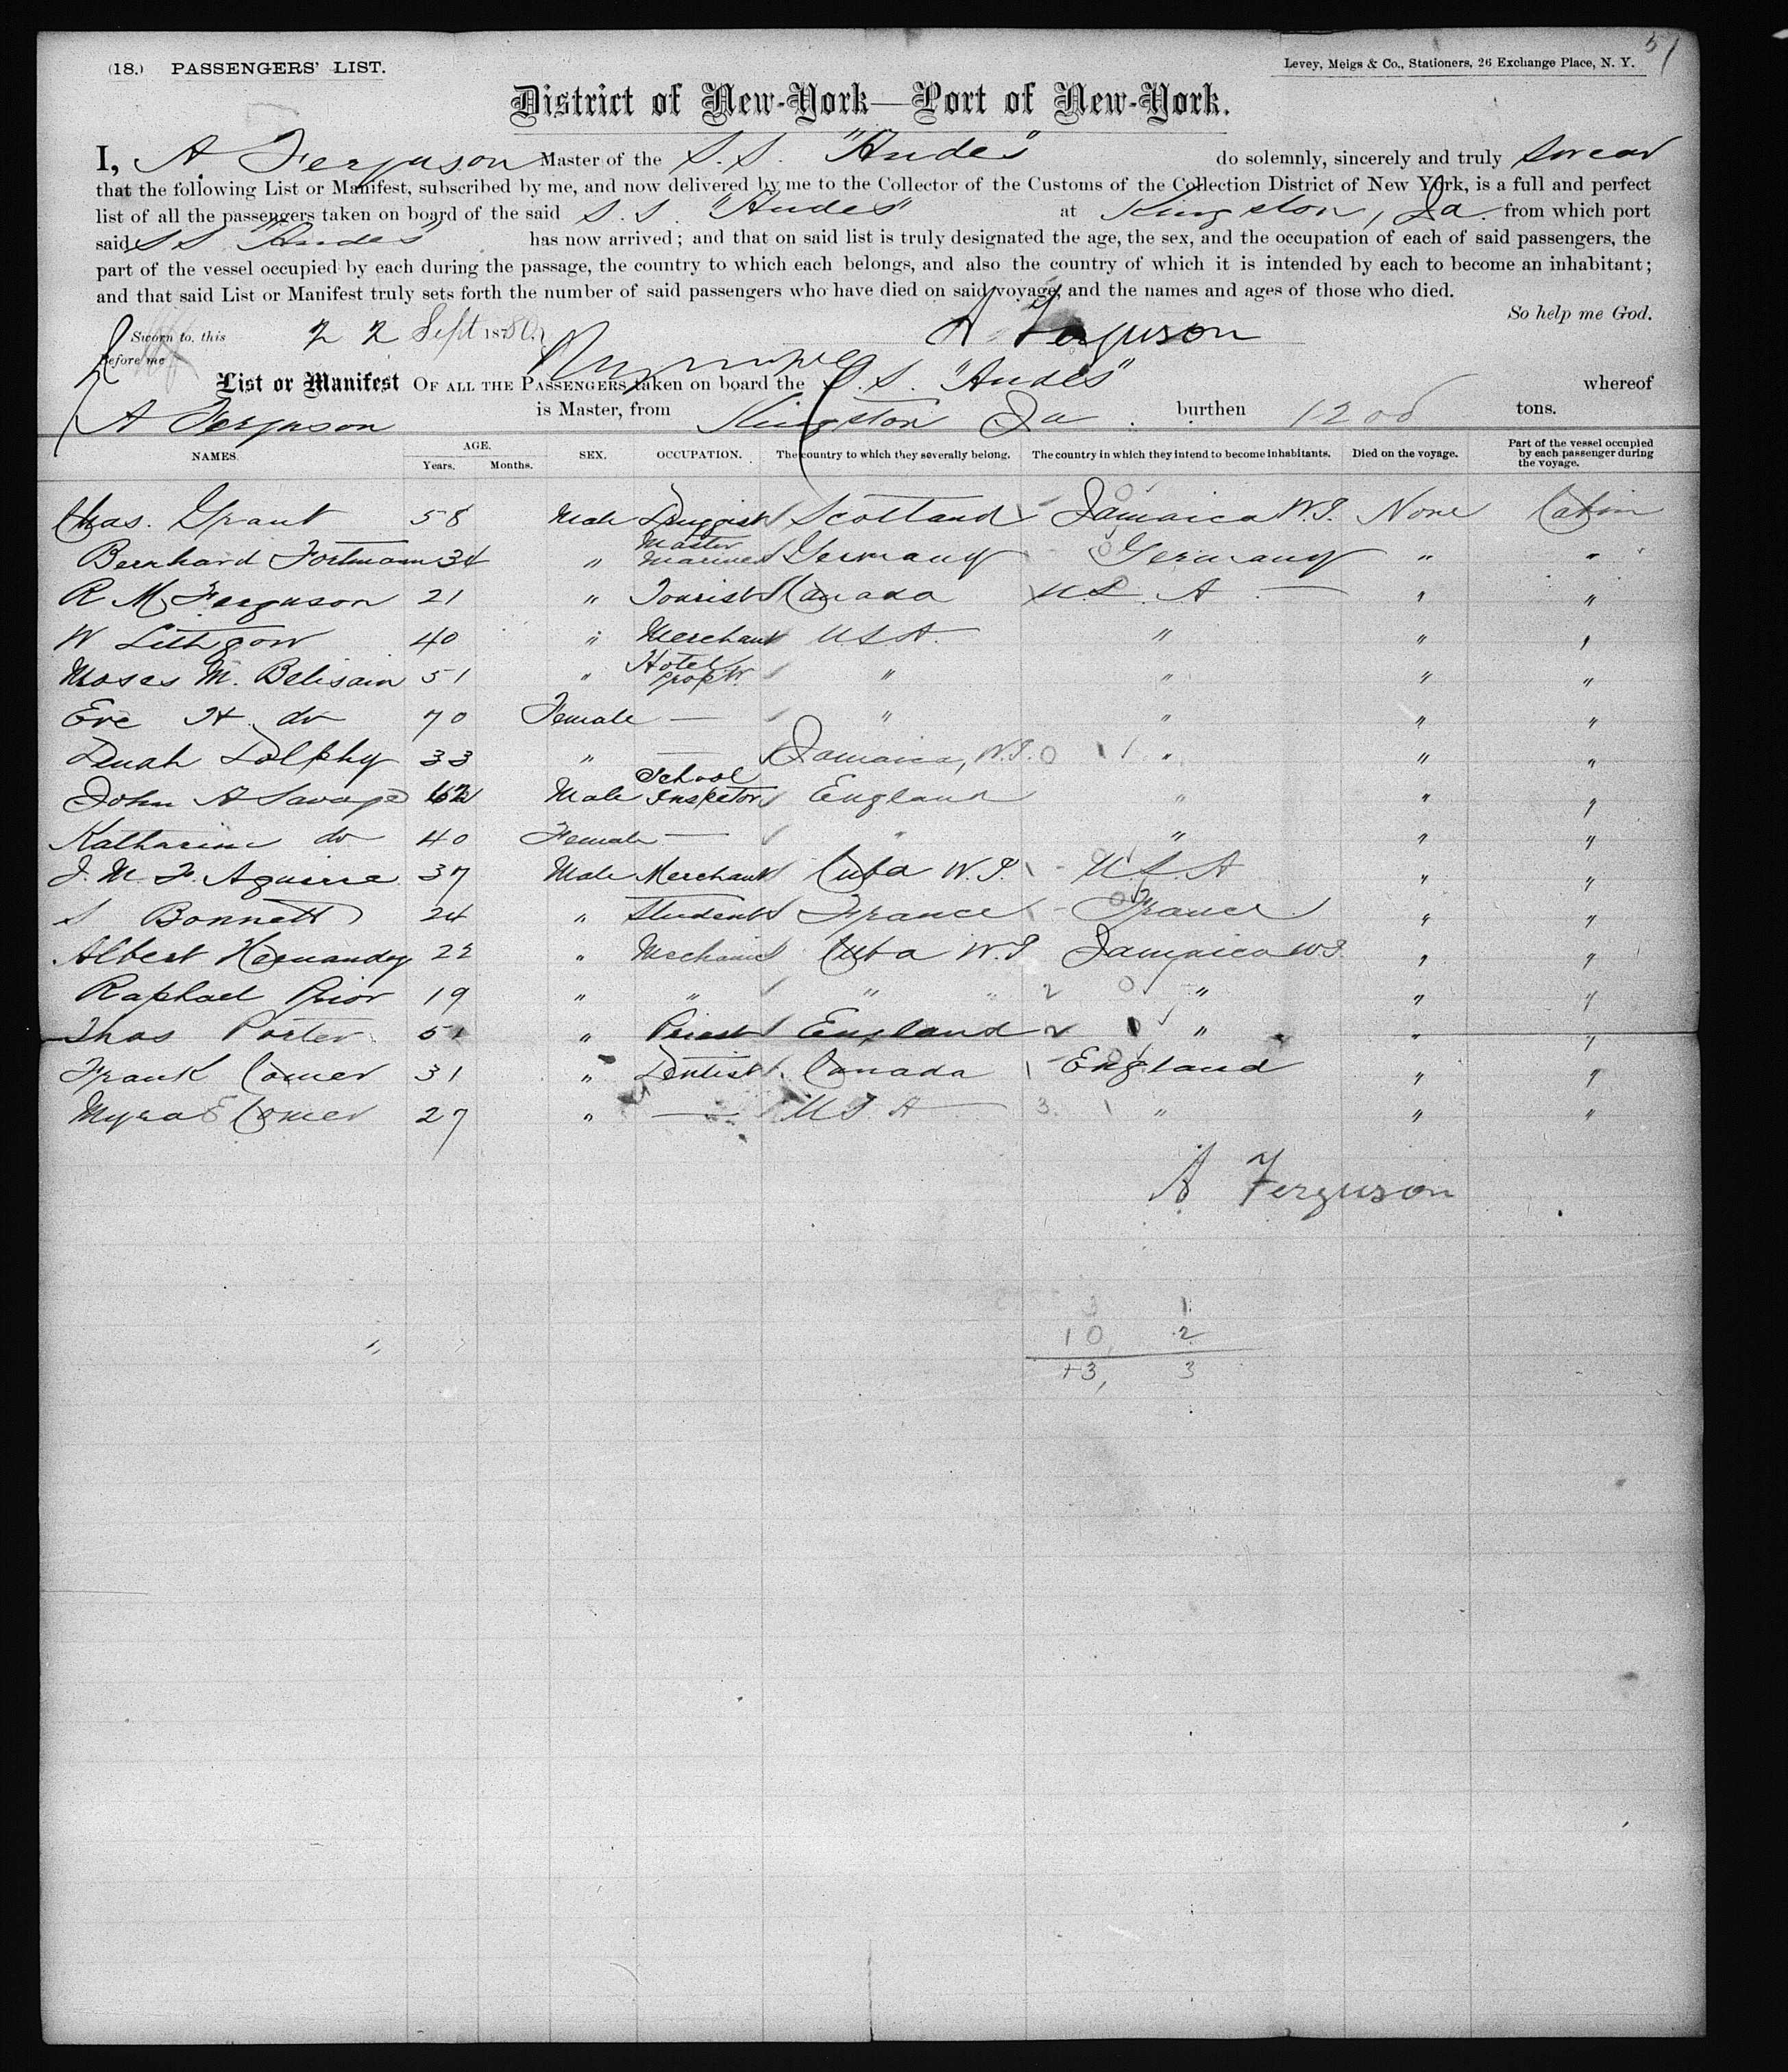 51
(18.) PASSENGERS' LIST.
Levey, Meigs & Co., Stationers, 26 Exchange Place, N. Y.
District of New-York—Port of New-York.
I, A Ferguson Master of the S.S. "Andes" do solemnly, sincerely and truly swear
that the following List or Manifest, subscribed by me, and now delivered by me to the Collector of the Customs of the Collection District of New York, is a full and perfect
list of all the passengers taken on board of the said S.S. "Andes" at Kingston, Ja. from which port
said S S "Andes" has now arrived; and that on said list is truly designated the age, the sex, and the occupation of each of said passengers, the
part of the vessel occupied by each during the passage, the country to which each belongs, and also the country of which it is intended by each to become an inhabitant;
and that said List or Manifest truly sets forth the number of said passengers who have died on said voyage, and the names and ages of those who died.
So help me God.
Sworn to, this 22 Sept 1880 A Ferguson
Before me
List or Manifest OF ALL THE PASSENGERS taken on board the S.S. "Andes" whereof
A Ferguson is Master, from Kingston Ja burthen 1200 tons.
NAMES. AGE. Years. Months. SEX. OCCUPATION. The country to which they severally belong. The country in which they intend to become inhabitants. Died on the voyage. Part of the vessel occupied by each passenger during the voyage.
Chas. Grant 58 Male Druggist Scotland Jamaica W.I. None Cabin
Bernhard Fortmann 34 " Master Mariner Germany Germany " "
R M Ferguson 21 " Tourist Canada U S. A " "
W Lithgow 40 " Merchant U S A " " "
Moses M. Belisain 51 " Hotel propr. " " " "
Eve H. do 70 Female — " " " "
Dinah Dolphy 33 " — Jamaica, W.I. " " "
John A Savage 62 Male School Inspector England " " "
Katharine do 40 Female — " " " "
J. M. F. Aguirre 37 Male Merchant Cuba W.I. U.S.A " "
S Bonnett 24 " Student France France " "
Albert Hernandez 22 " Mechanic Cuba W.I Jamaica W.I. " "
Raphael Prior 19 " " " " " " "
Thos Porter 51 " Priest England " " "
Frank Comer 31 " Dentist Canada England " "
Myra E Comer 27 " — U S A " " "
A Ferguson
3 1
10 2
13 3